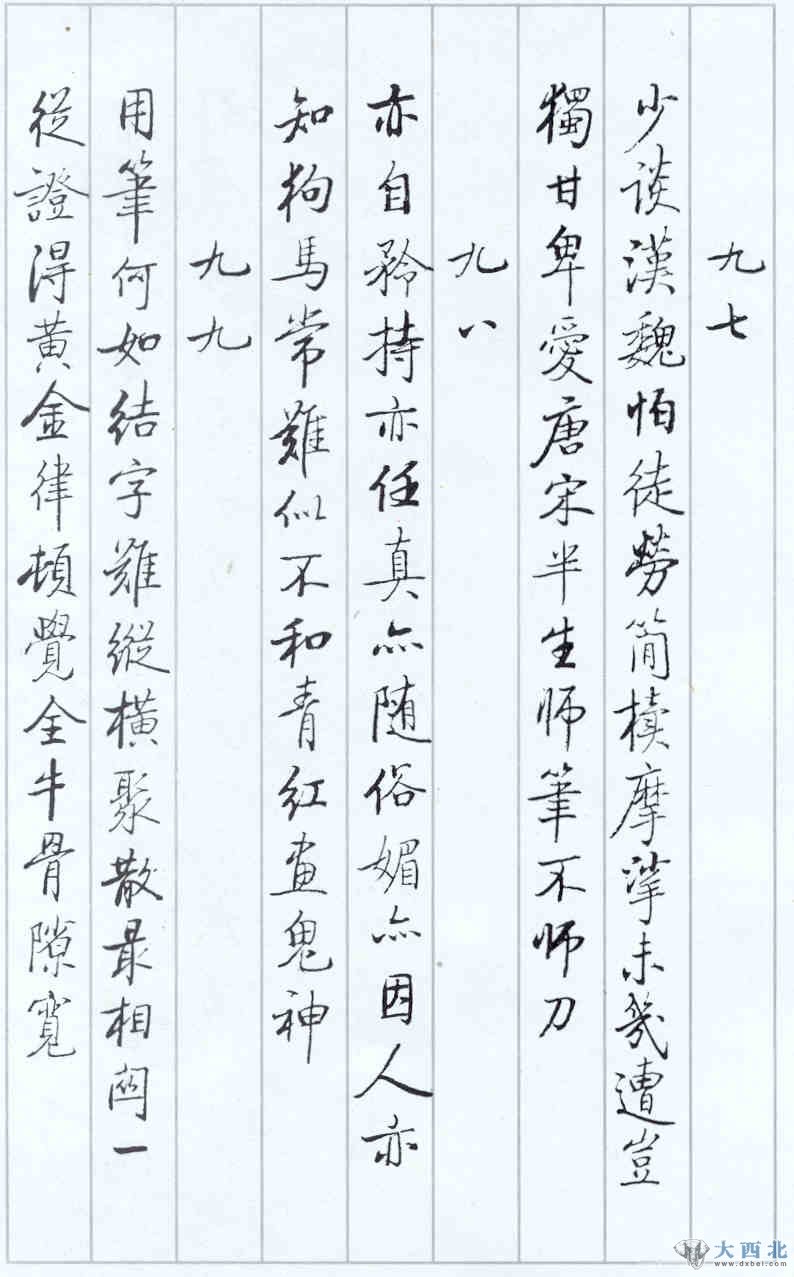 九七
少談漢魏怕徒勞簡櫝摩挲未幾遭豈
獨甘卑愛唐宋半生师筆不师刀
九八
亦自矜持亦任真亦随俗媚亦因人亦
知狗馬常難似不和青紅畫鬼神
九九
用筆何如結字難縱橫聚散最相關一
從證得黄金律頓覺全牛骨隙寬
大西北
www.dxbei.com